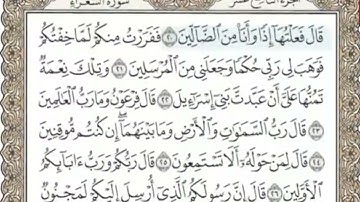 الجزء التاسع عشر سورة الشعراء
قَالَ فَعَلْتُهَا إِذًا وَأَنَا مِنَ الضَّالِّينَ ٢٠ فَفَرَرْتُ مِنكُمْ لَمَّا خِفْتُكُمْ
فَوَهَبَ لِي رَبِّي حُكْمًا وَجَعَلَنِي مِنَ الْمُرْسَلِينَ ٢١ وَتِلْكَ نِعْمَةٌ
تَمُنُّهَا عَلَيَّ أَنْ عَبَّدتَّ بَنِي إِسْرَاءِيلَ ٢٢ قَالَ فِرْعَوْنُ وَمَا رَبُّ الْعَالَمِينَ
٢٣ قَالَ رَبُّ السَّمَاوَاتِ وَالْأَرْضِ وَمَا بَيْنَهُمَا إِن كُنتُم مُّوقِنِينَ
٢٤ قَالَ لِمَنْ حَوْلَهُ أَلَا تَسْتَمِعُونَ ٢٥ قَالَ رَبُّكُمْ وَرَبُّ ءَابَائِكُمُ
الْأَوَّلِينَ ٢٦ قَالَ إِنَّ رَسُولَكُمُ الَّذِي أُرْسِلَ إِلَيْكُمْ لَمَجْنُونٌ